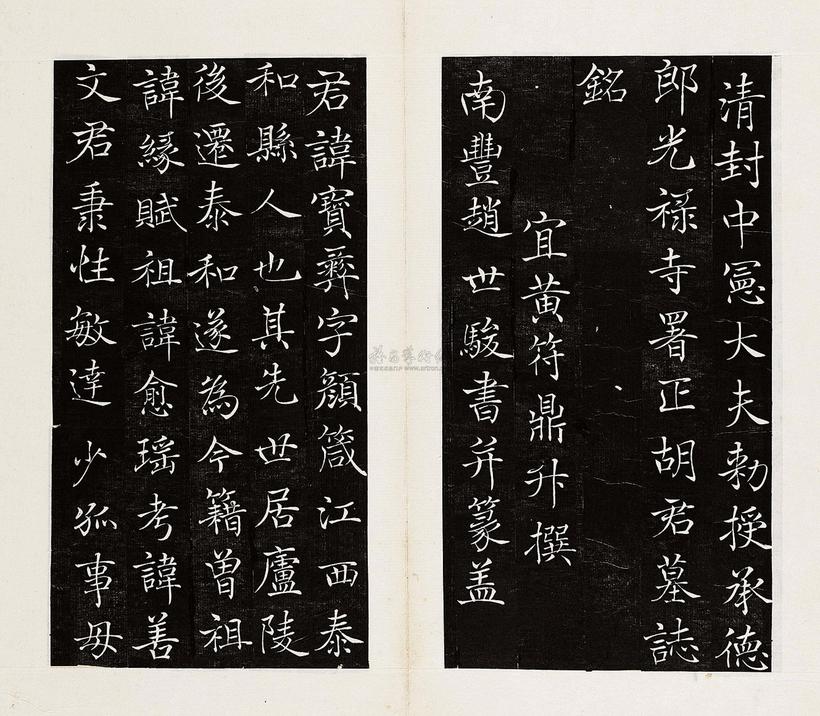 清封中憲大夫勅授承德
郎光祿寺署正胡君墓誌
銘
宜黃符鼎升撰
南豐趙世駿書并篆盖
君諱寶彞字顏箴江西泰
和縣人也其先世居廬陵
後遷泰和遂為今籍曾祖
諱緣賦祖諱愈瑶考諱善
文君秉性敏達少孤事母